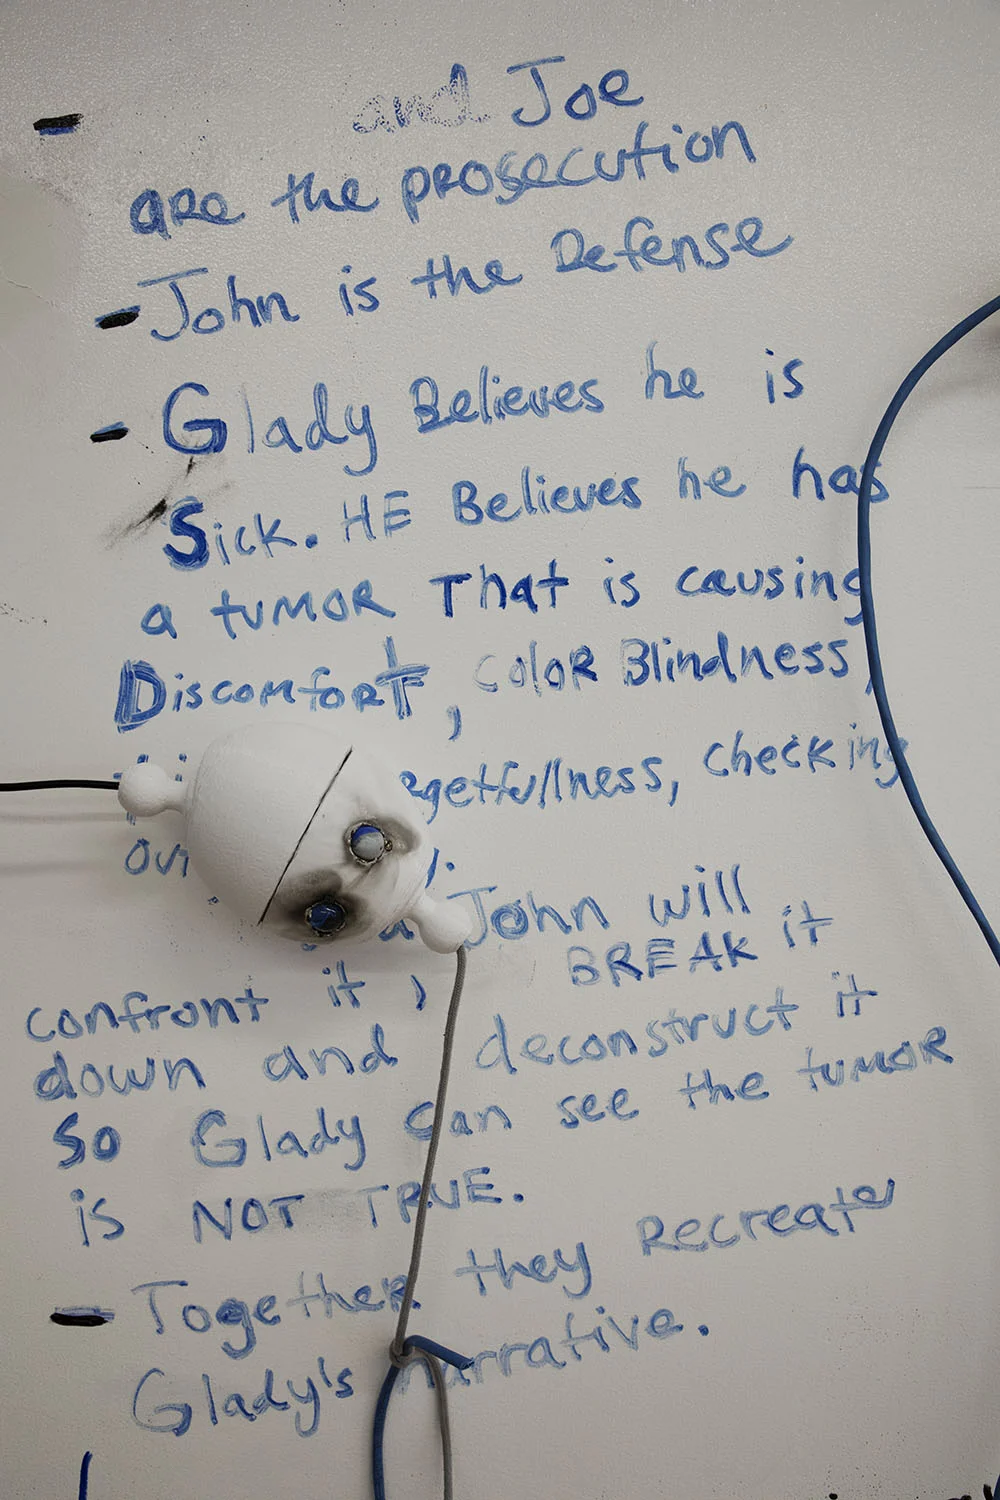 - and Joe
are the prosecution
- John is the Defense
- Glady Believes he is
Sick. HE Believes he has
a tumor That is causing
Discomfort, color Blindness,
checking
John will
confront it, BREAK it
down and deconstruct it
So Glady can see the tumor
is NOT TRUE.
- Together they Recreate
Glady's narrative.